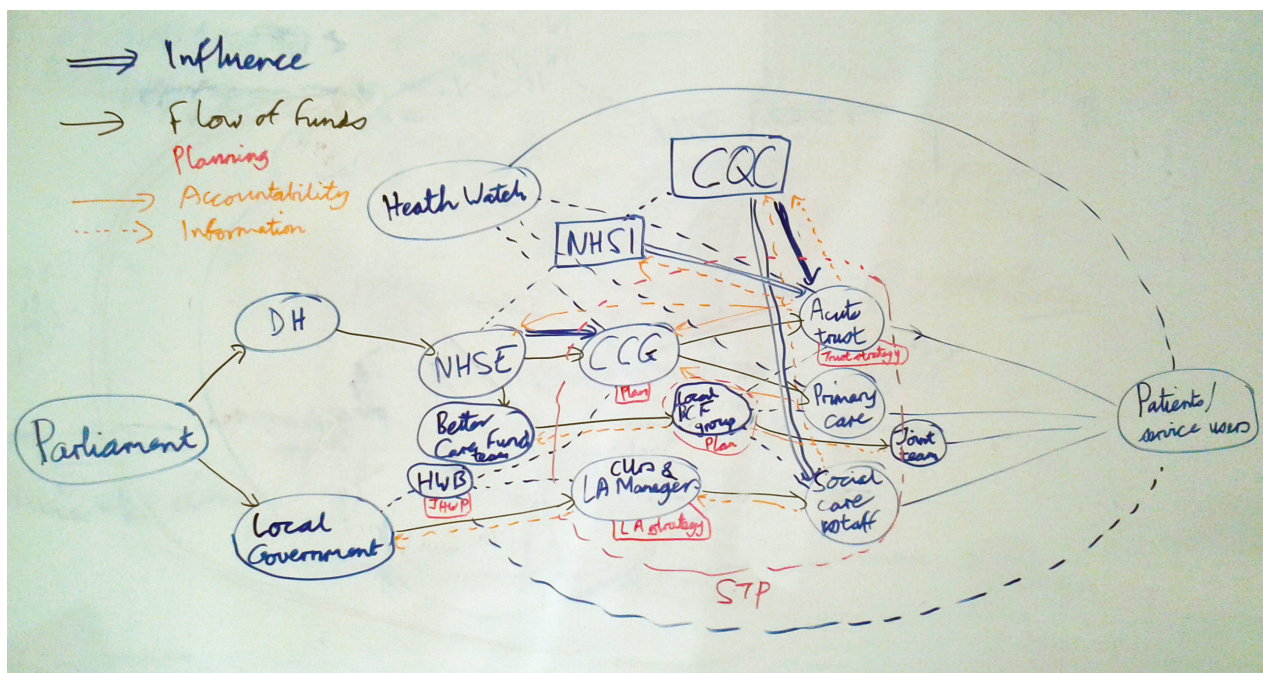 Influence
Flow of Funds
Planning
Accountability
Information
Heath Watch
CQC
NHSI
DH
NHSE
CCG
Plan
Acute
trust
Trust strategy
Parliament
Better
Care Fund
team
Local
BCF
group
Plan
Primary
care
Joint
team
Patients/
service users
HWB
JHWP
Cllrs &
LA Manager
LA strategy
Social
care
staff
Local
Government
STP